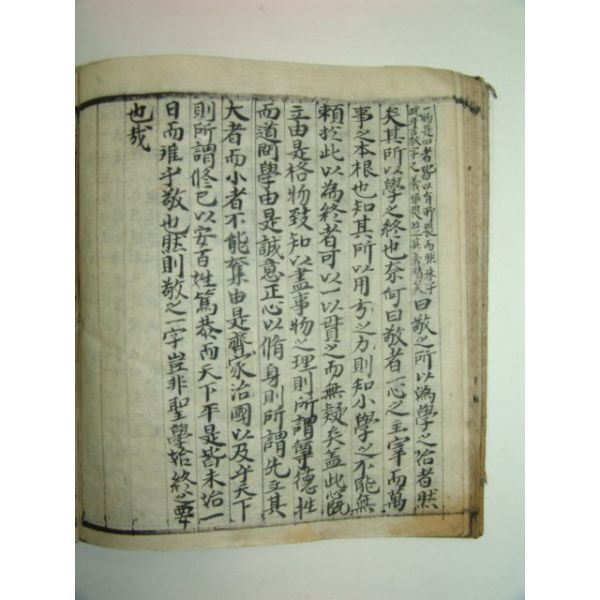 一物是四者皆以有所畏而然朱子
晩年言敬字之義惟畏近之其義精矣
曰敬之所以為學之始者然
矣其所以學之終也奈何曰敬者一心之主宰而萬
事之本根也知其所以用方之力則知小學之不能無
賴於此以為終者可以一以貫之而無疑矣盖此心旣
立由是格物致知以盡事物之理則所謂尊德性
而道問學由是誠意正心以脩身則所謂先立其
大者而小者不能奪由是齊家治國以及乎天下
則所謂修己以安百姓篤恭而天下平是皆未始一
日而離乎敬也然則敬之一字豈非聖學始終之要
也哉